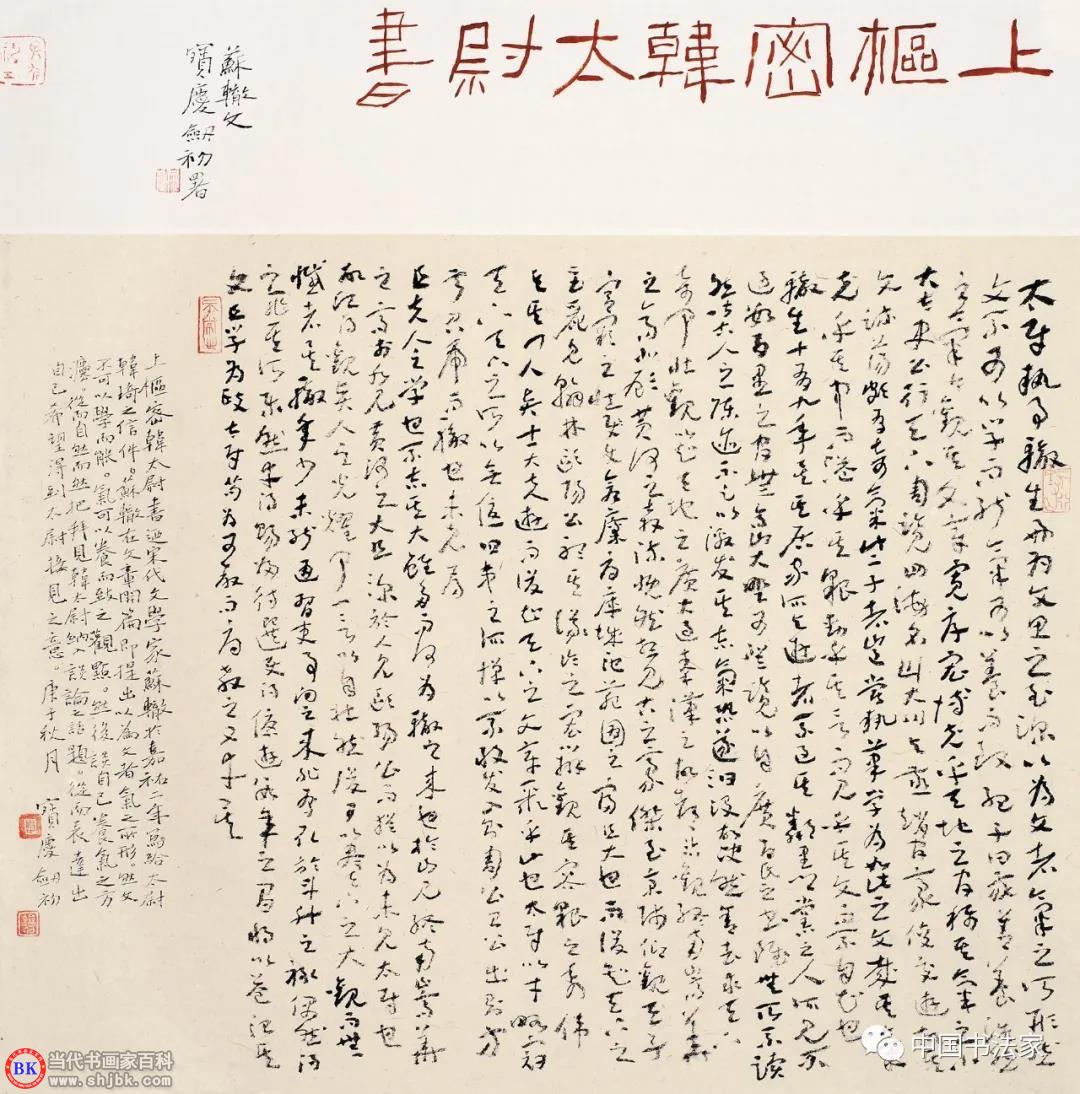 上樞密韓太尉書
蘇轍文
寶慶劍初署
太尉執事轍生好為文思之至深以為文者氣之所形然
文不可以學而能氣可以養而致孟子曰我善養吾浩然
之氣今觀其文章寬厚宏博充乎天地之間稱其氣之小
大太史公行天下周覽四海名山大川與燕趙間豪俊交遊故其
文疏蕩頗有奇氣此二子者豈嘗執筆學為如此之文哉其氣
充乎其中而溢乎其貌動乎其言而見乎其文而不自知也
轍生十有九年矣其居家所與遊者不過其鄰里鄉黨之人所見不
過數百里之間無高山大野可登覽以自廣百氏之書雖無所不讀
然皆古人之陳迹不足以激發其志氣恐遂汩沒故決然舍去求天下
奇聞壯觀以知天地之廣大過秦漢之故都恣觀終南嵩華
之高北顧黃河之奔流慨然想見古之豪傑至京師仰觀天子
宮闕之壯與倉廩府庫城池苑囿之富且大也而後知天下之
巨麗見翰林歐陽公聽其議論之宏辯觀其容貌之秀偉
與其門人賢士大夫遊而後知天下之文章聚乎此也太尉以才略冠
天下天下之所以無憂四夷之所憚以不敢發入則周公召公出則方
叔召虎而轍也未之見焉
且夫人之學也不志其大雖多而何為轍之來也於山見終南嵩華
之高於水見黃河之大且深於人見歐陽公而猶以為未見太尉也
故願得觀賢人之光耀聞一言以自壯然後可以盡天下之大觀而無
憾者矣轍年少未能通習吏事向之來非有取於斗升之祿偶然得
之非其所樂然幸得賜歸待選使得優遊數年之間將以益治其
文且學為政太尉苟以為可教而辱教之又幸矣
上樞密韓太尉書迺宋代文學家蘇轍於嘉祐二年寫給太尉
韓琦之信件。蘇轍在文章開篇即提出以為文者氣之所形。然文
不可以學而能。氣可以養而致之觀點。然後談自己養氣之方
從而自然而然把拜見韓太尉納入談論之話題。從而表達出
自己希望得到太尉接見之意。庚子秋月
寶慶劍初
中国书法家
BK
当代书画家百科
www.shjbk.com